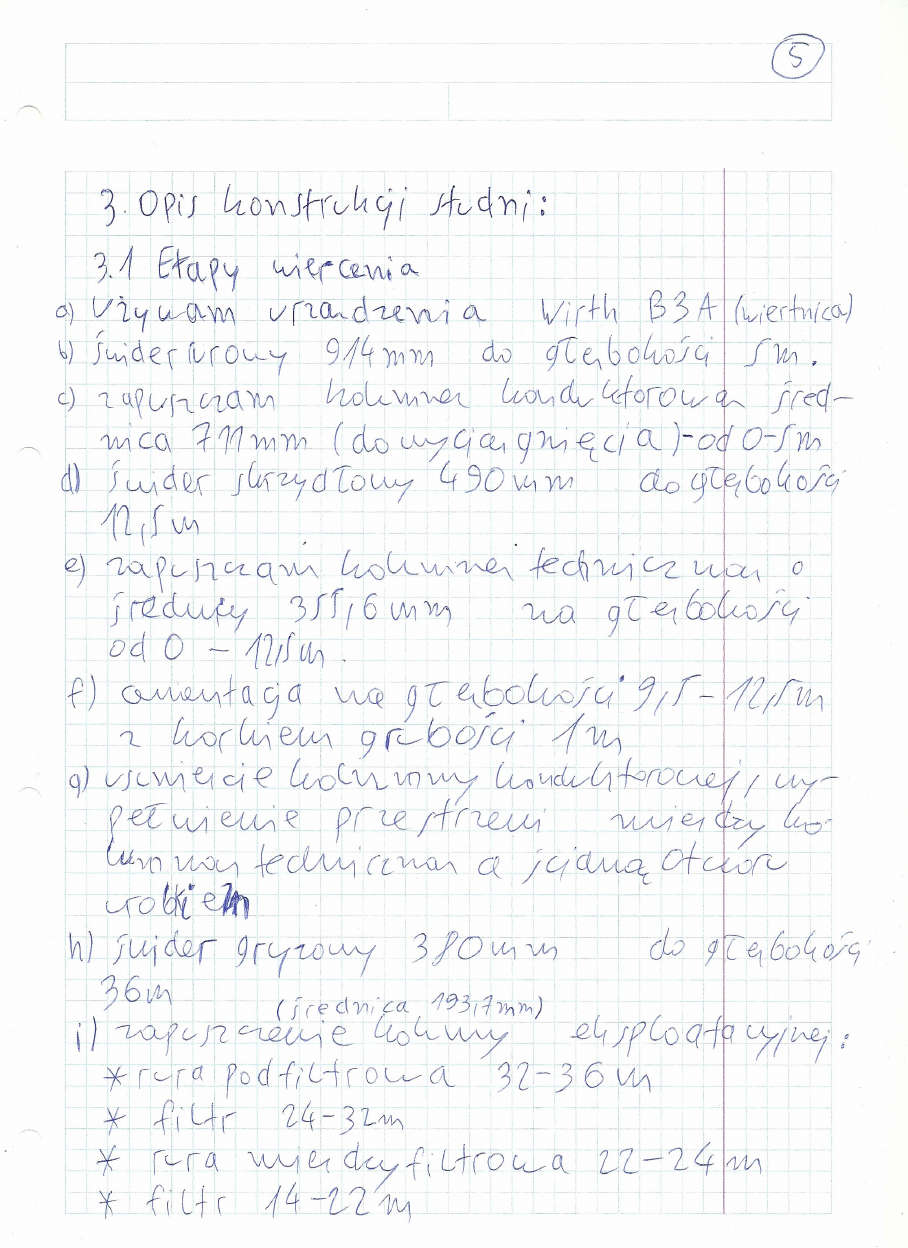 5
3. Opis konstrukcji studni:
3.1 Etapy wiercenia
a) Używam urządzenia Wirth B3A (wiertnica)
b) świder rurowy 914mm do głębokości 5m.
c) zapuszczam kolumnę konduktorową śred-
nica 711mm (do wyciągnięcia)-od 0-5m
d) świder skrzydłowy 490mm do głębokości
12,5m
e) zapuszczam kolumnę techniczną o
średnicy 355,6mm na głębokości
od 0 - 12,5m.
f) cementacja na głębokości 9,5-12,5m
z korkiem grubości 1m
g) usunięcie kolumny konduktorowej, wy-
pełnienie przestrzeni między ko-
lumną techniczną a ścianą otworu
urobkiem
h) świder gryzowy 380mm do głębokości
36m
(średnica 193,7mm)
i) zapuszczenie kolumny eksploatacyjnej:
* rura podfiltrowa 32-36m
* filtr 24-32m
* rura międzyfiltrowa 22-24m
* filtr 14-22m